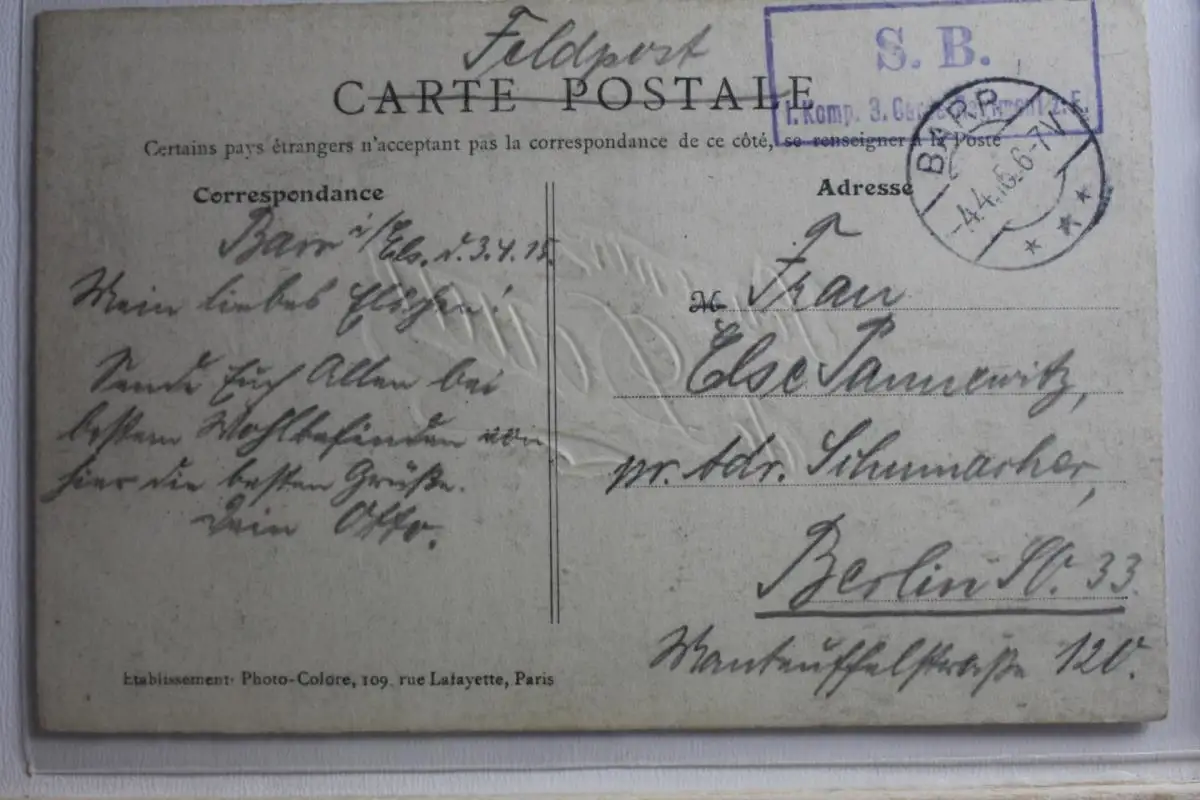 Feldpost
CARTE POSTALE
S. B.
1. Komp. 3. Garde
Certains pays étrangers n'acceptant pas la correspondance de ce côté, se renseigner à la Poste
BARR
-4.4.15.6-7V.
Correspondance
Barr i/Els. d. 3.4.15.
Mein liebes Elschen!
Sende Euch Allen bei
bestem Wohlbefinden von
hier die besten Grüße.
Dein Otto.
Adresse
M Frau
Else Pannewitz,
pr. Adr. Schumacher,
Berlin SO. 33.
Manteuffelstraße 120.
Etablissement Photo-Colore, 109, rue Lafayette, Paris